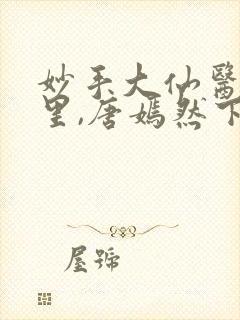 妙手大仙醫
里,唐嫣然下
屋號